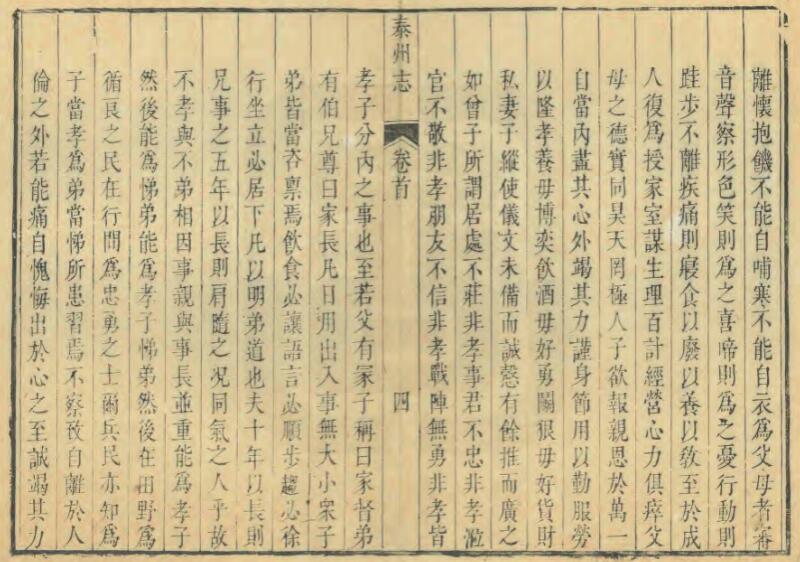 離懷抱饑不能自哺寒不能自衣爲父母者審
音聲察形色笑則爲之喜啼則爲之憂行動則
跬步不離疾痛則寢食以廢以養以敎至於成
人復爲授家室謀生理百計經營心力俱瘁父
母之德實同昊天罔極人子欲報親恩於萬一
自當內盡其心外竭其力謹身節用以勤服勞
以隆孝養毋博奕飲酒毋好勇鬬狠毋好貨財
私妻子縱使儀文未備而誠慤有餘推而廣之
如曾子所謂居處不莊非孝事君不忠非孝涖
官不敬非孝朋友不信非孝戰陣無勇非孝皆
泰州志 卷首 四
孝子分內之事也至若父有冢子稱曰家督弟
有伯兄尊曰家長凡日用出入事無大小衆子
弟皆當咨禀焉飲食必讓語言必順步趨必徐
行坐立必居下凡以明弟道也夫十年以長則
兄事之五年以長則肩隨之况同氣之人乎故
不孝與不弟相因事親與事長並重能爲孝子
然後能爲悌弟能爲孝子悌弟然後在田野爲
循良之民在行間爲忠勇之士爾兵民亦知爲
子當孝爲弟當悌所患習焉不察致自離於人
倫之外若能痛自愧悔出於心之至誠竭其力